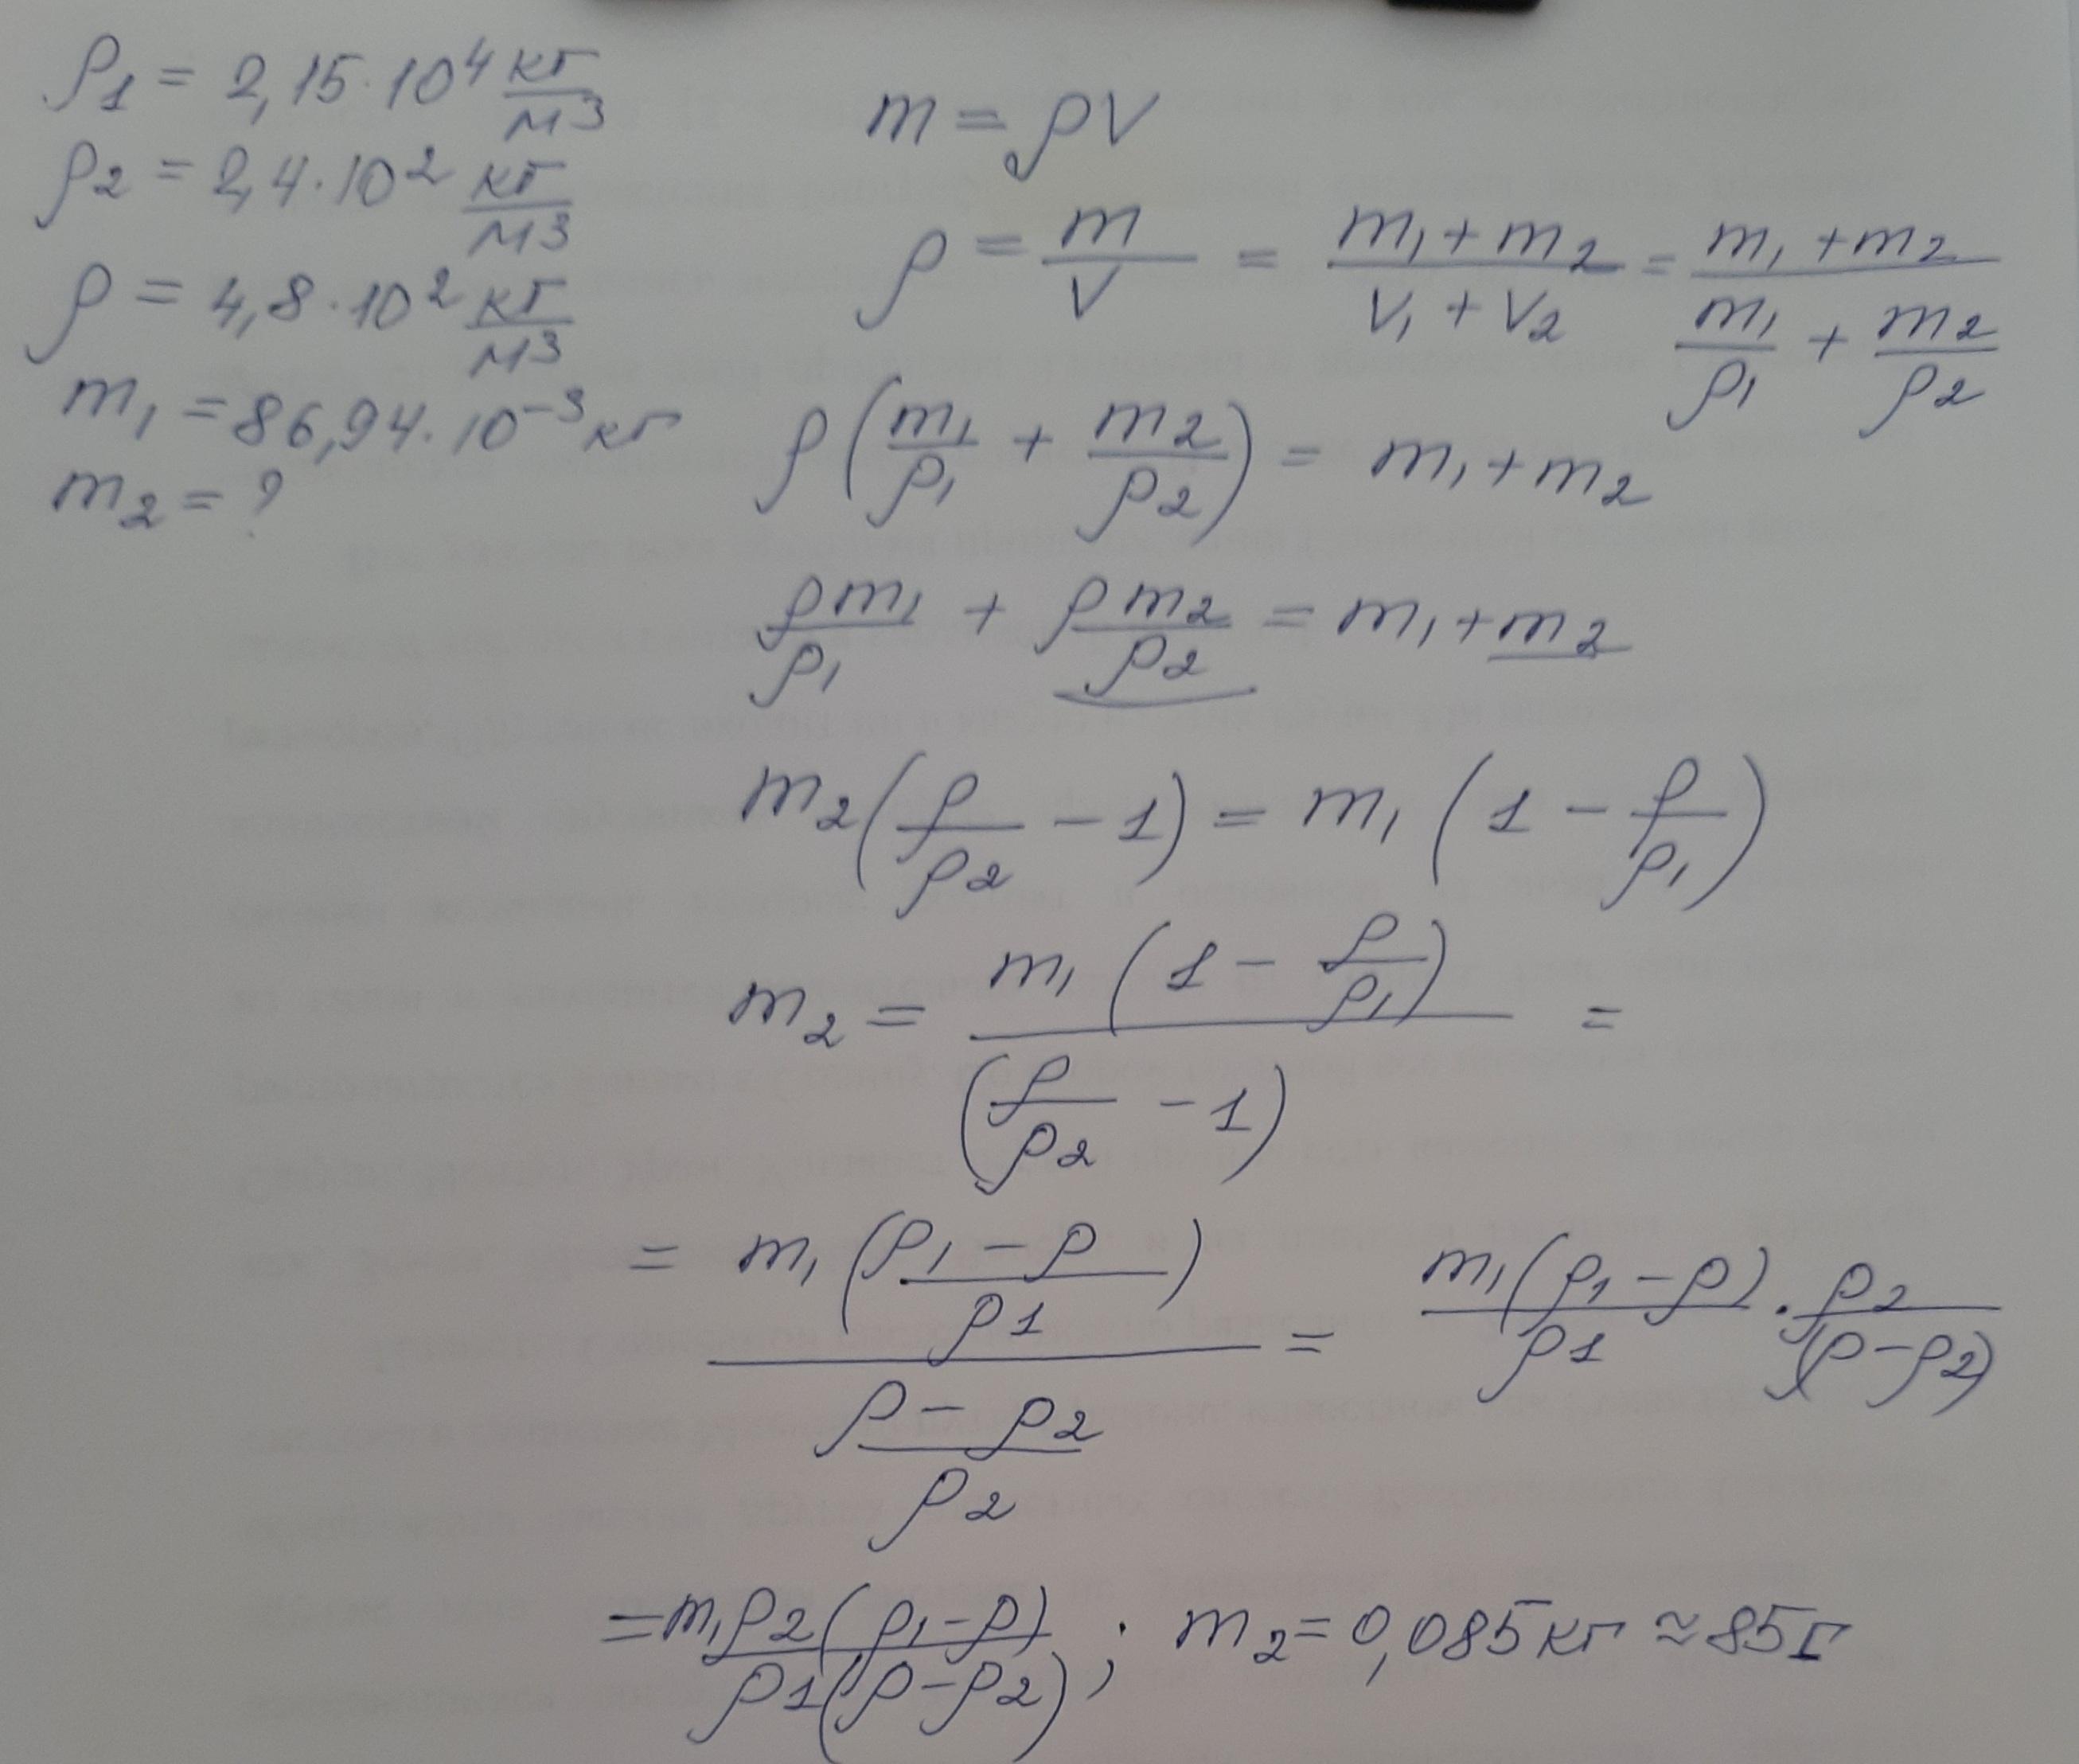 ρ1 = 2,15·10^4 кг/м3
ρ2 = 2,4·10^2 кг/м3
ρ = 4,8·10^2 кг/м3
m1 = 86,94·10^-3 кг
m2 = ?
m = ρV
ρ = m/V = (m1 + m2)/(V1 + V2) = (m1 + m2)/(m1/ρ1 + m2/ρ2)
ρ(m1/ρ1 + m2/ρ2) = m1 + m2
ρm1/ρ1 + ρm2/ρ2 = m1 + m2
m2(ρ/ρ2 - 1) = m1(1 - ρ/ρ1)
m2 = m1(1 - ρ/ρ1)/(ρ/ρ2 - 1) =
= m1((ρ1 - ρ)/ρ1)/((ρ - ρ2)/ρ2) = m1(ρ1 - ρ)/ρ1 · ρ2/(ρ - ρ2)
= m1ρ2(ρ1 - ρ)/ρ1(ρ - ρ2) ; m2 = 0,085 кг ≈ 85 г